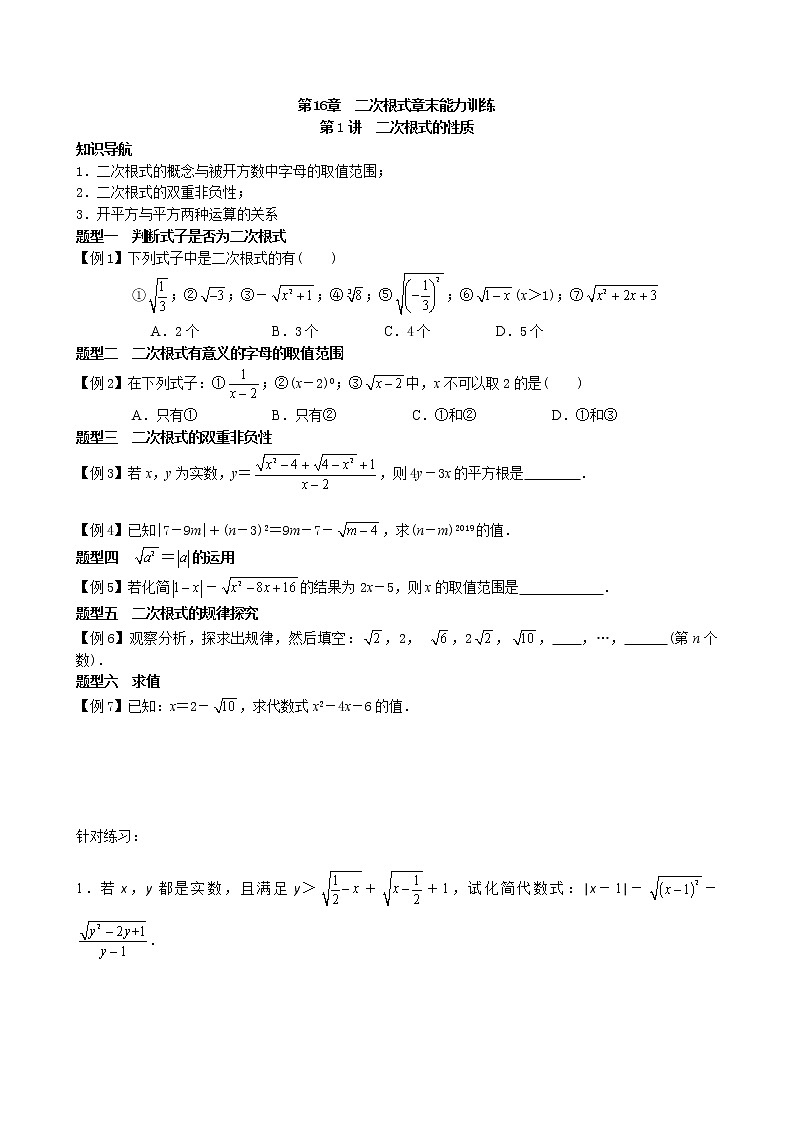 第16章　二次根式章末能力训练
第1讲　二次根式的性质
知识导航
1.二次根式的概念与被开方数中字母的取值范围;
2.二次根式的双重非负性;
3.开平方与平方两种运算的关系
题型一　判断式子是否为二次根式
【例1】下列式子中是二次根式的有(　　)
①√(1/3);②√(-3);③-√(x²+1);④∛8;⑤√((-1/3)²);⑥√(1-x)(x>1);⑦√(x²+2x+3)
A.2个　B.3个　C.4个　D.5个
题型二　二次根式有意义的字母的取值范围
【例2】在下列式子:①1/(x-2);②(x-2)⁰;③√(x-2)中,x不可以取2的是(　　)
A.只有①　B.只有②　C.①和②　D.①和③
题型三　二次根式的双重非负性
【例3】若x,y为实数,y=(√(x²-4)+√(4-x²)+1)/(x-2),则4y-3x的平方根是________.
【例4】已知|7-9m|+(n-3)²=9m-7-√(m-4),求(n-m)²⁰¹⁹的值.
题型四　√(a²)=|a|的运用
【例5】若化简|1-x|-√(x²-8x+16)的结果为2x-5,则x的取值范围是____________.
题型五　二次根式的规律探究
【例6】观察分析,探求出规律,然后填空:√2,2,√6,2√2,√10,____,…,______(第n个
数).
题型六　求值
【例7】已知:x=2-√10,求代数式x²-4x-6的值.
针对练习:
1.若x,y都是实数,且满足y>√(1/2-x)+√(x-1/2)+1,试化简代数式:|x-1|-√((x-1)²)-
√(y²-2y+1)/(y-1).